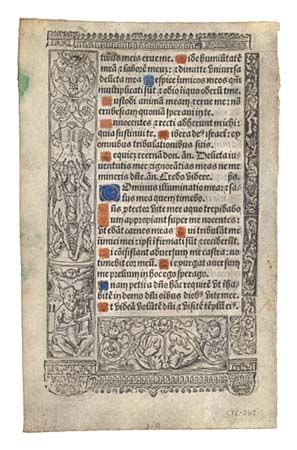 tibus meis erue me. Vide humilitatē
meā & laborē meū: & dimitte vniuersa
delicta mea. Respice inimicos meos qm̄
multiplicati sūt & odio iniquo oderūt me.
Custodi animā meam & erue me: nō
erubescam quoniā speraui in te.
Innocentes & recti adheserunt michi:
quia sustinui te. Libera deꝰ israel: ex
omnibus tribulationibus suis.
Requiē eternā don. añ. Delicta iu
uentutis mee: & ignorātias meas ne me
mineris dn̄e. añ. Credo videre. ps.
Dominus illuminatio mea: & sa
lus mea quem timebo.
Dn̄s ꝓtector vite mee: a quo trepidabo
Dum appropiant super me nocentes:
vt edāt carnes meas. Qui tribulāt me
inimici mei: ipsi īfirmati sūt & ceciderūt.
Si cōsistant aduersum me castra: nō
timebit cor meū. Si exurgat aduersum
me prelium: in hoc ego sperabo.
Unam petii a dn̄o hāc requirā: vt īha
bitē in domo dn̄i oībus diebꝰ vite mee.
Ut videā volūtē dn̄i: & visitē tēplū eiꝰ.